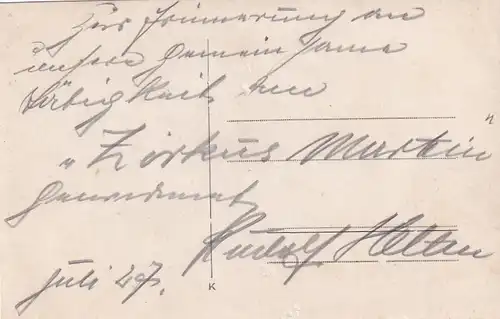 Zur Erinnerung an
unsere gemeinsame
Tätigkeit am
"Zirkus Martin"
gewidmet
Rudolf
Juli 27.
K